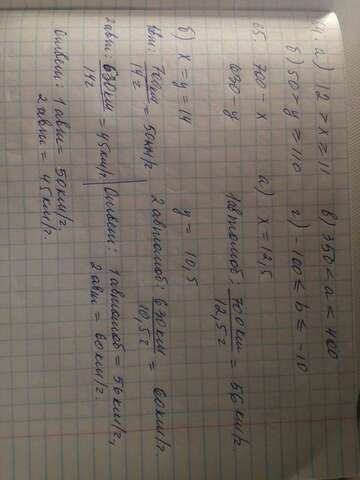 64. а) 12 > x > 11 в) 350 < a < 400
б) 50 > y > 110 г) -100 ≤ b ≤ -10
65. 700 - x а) x = 12,5
630 - y 1 автомоб: 700 км / 12,5 г = 56 км/г.
y = 10,5 2 автомоб: 630 км / 10,5 г = 60 км/г.
Ответ: 1 автомоб = 56 км/г, 2 авт = 60 км/г.
б) x = y = 14
1 авт: 700 км / 14 г = 50 км/г
2 авт: 630 км / 14 г = 45 км/г.
Ответ: 1 авт = 50 км/г.
2 авт = 45 км/г.